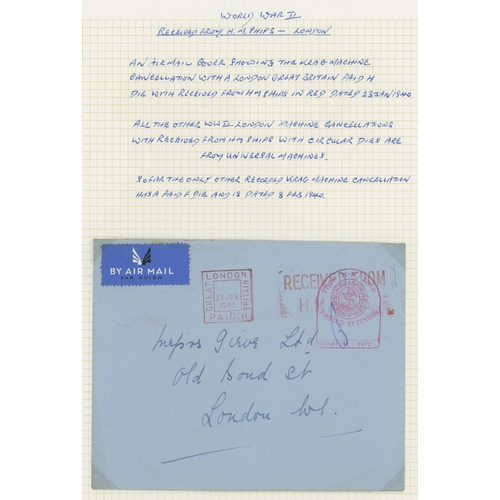 WORLD WAR II
RECEIVED FROM H.M. SHIPS — LONDON
AN AIRMAIL COVER SHOWING THE KRAG MACHINE
CANCELLATION WITH A LONDON GREAT BRITAIN PAID H
DIE WITH RECEIVED FROM HM SHIPS IN RED DATED 23 JAN 1940
ALL THE OTHER WWII LONDON MACHINE CANCELLATIONS
WITH RECEIVED FROM HM SHIPS WITH CIRCULAR DIES ARE
FROM UNIVERSAL MACHINES.
SO FAR THE ONLY OTHER RECORDED KRAG MACHINE CANCELLATION
HAS A PAID F DIE AND IS DATED 8 FEB 1940.
BY AIR MAIL
PAR AVION
LONDON
GREAT
BRITAIN
23 JAN
1940
PAID. H
RECEIVED FROM
H.
Messrs Gieve Ltd
Old Bond St
London W1.